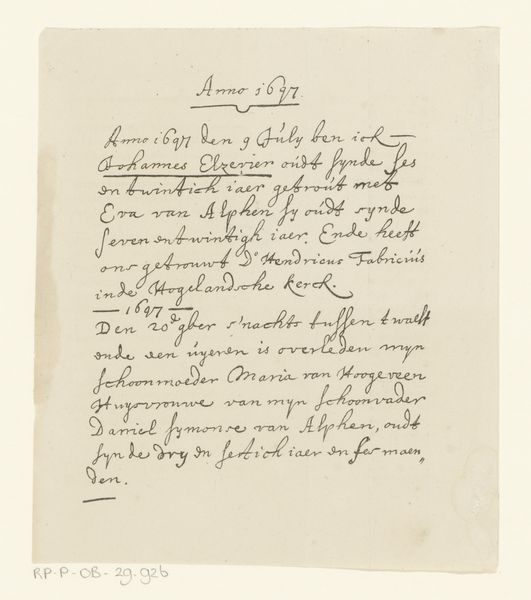 Anno 1697.
Anno 1697 den 9 July ben ick
Johannes Elzevier oúdt synde ses
en twintich iaer getroút met
Eva van Alphen sy oúdt synde
seven en twintigh iaer. Ende heeft
ons getrouwt Do Hendricus Fabriciús
inde Hogelandsche Kerck.
— 1697 —
Den 20e 9ber s'nachts tussen twaelf
ende een úyeren is overleden myn
schoonmoeder Maria van Hoogeveen
Huysvrouwe van myn schoonvader
Daniel symonse van Alphen, oudt
synde dry en sestich iaer en ses maen„
den.
RP-P-OB-29.926